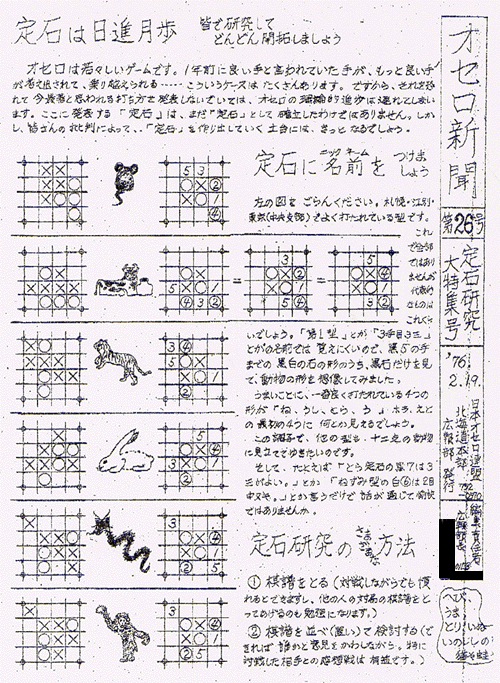 オセロ新聞
第26号
定石研究
大特集号
'76.
2.19.
日本オセロ連盟
北海道本部
広報部 発行
編集責任者
定石は日進月歩
皆で研究して
どんどん開拓しましょう
オセロは若々しいゲームです。1年前に良い手と言われていた手が、もっと良い手
が考え出されて、乗り越えられる……こういうケースはたくさんあります。ですから、それを恐れ
て今最善と思われる打ち方を発表しないでいては、オセロの理論的進歩は遅れてしまいま
す。ここに発表する「定石」は、まだ「定石」として確立したわけではありません。しか
し、皆さんの批判によって、「定石」を作り出していく土台には、きっとなるでしょう。
定石に名前をつけましょう
ニックネーム
左の図をごらんください。札幌・江別・
東京(中央支部)でよく打たれている型です。
これ
で全部
ではあり
ませんが
代表的
なものは
これくら
いでしょう。「第1型」とか「3手目3三」
とかの名前では覚えにくいので、黒5の手
までの黒白の石の形のうち、黒石だけを見
て、動物の形を想像してみました。
うまいことに、一番良く打たれている4つの
形が「ね、うし、とら、う」ホラ、えと
の最初の4つに何とか見えるでしょう。
この調子で、他の型も、十二支の動物
に見立ててゆきたいのです。
そして、たとえば「とら定石の黒7は3
三がよい。」とか「ねずみ型の白⑥は2四
中々。」とか言うだけで話が通じて愉快
ではありませんか。
定石研究のさまざまな方法
① 棋譜をとる(対戦しながらでも慣
れるとできますし、他の人の対局の棋譜をと
ってあげるのも勉強になります。)
② 棋譜を並べ(置い)て検討する(で
きれば誰かと意見をかわしながら。特に
対戦した相手との感想戦は有益です。)
へび
うま
とり いぬ
いのししの